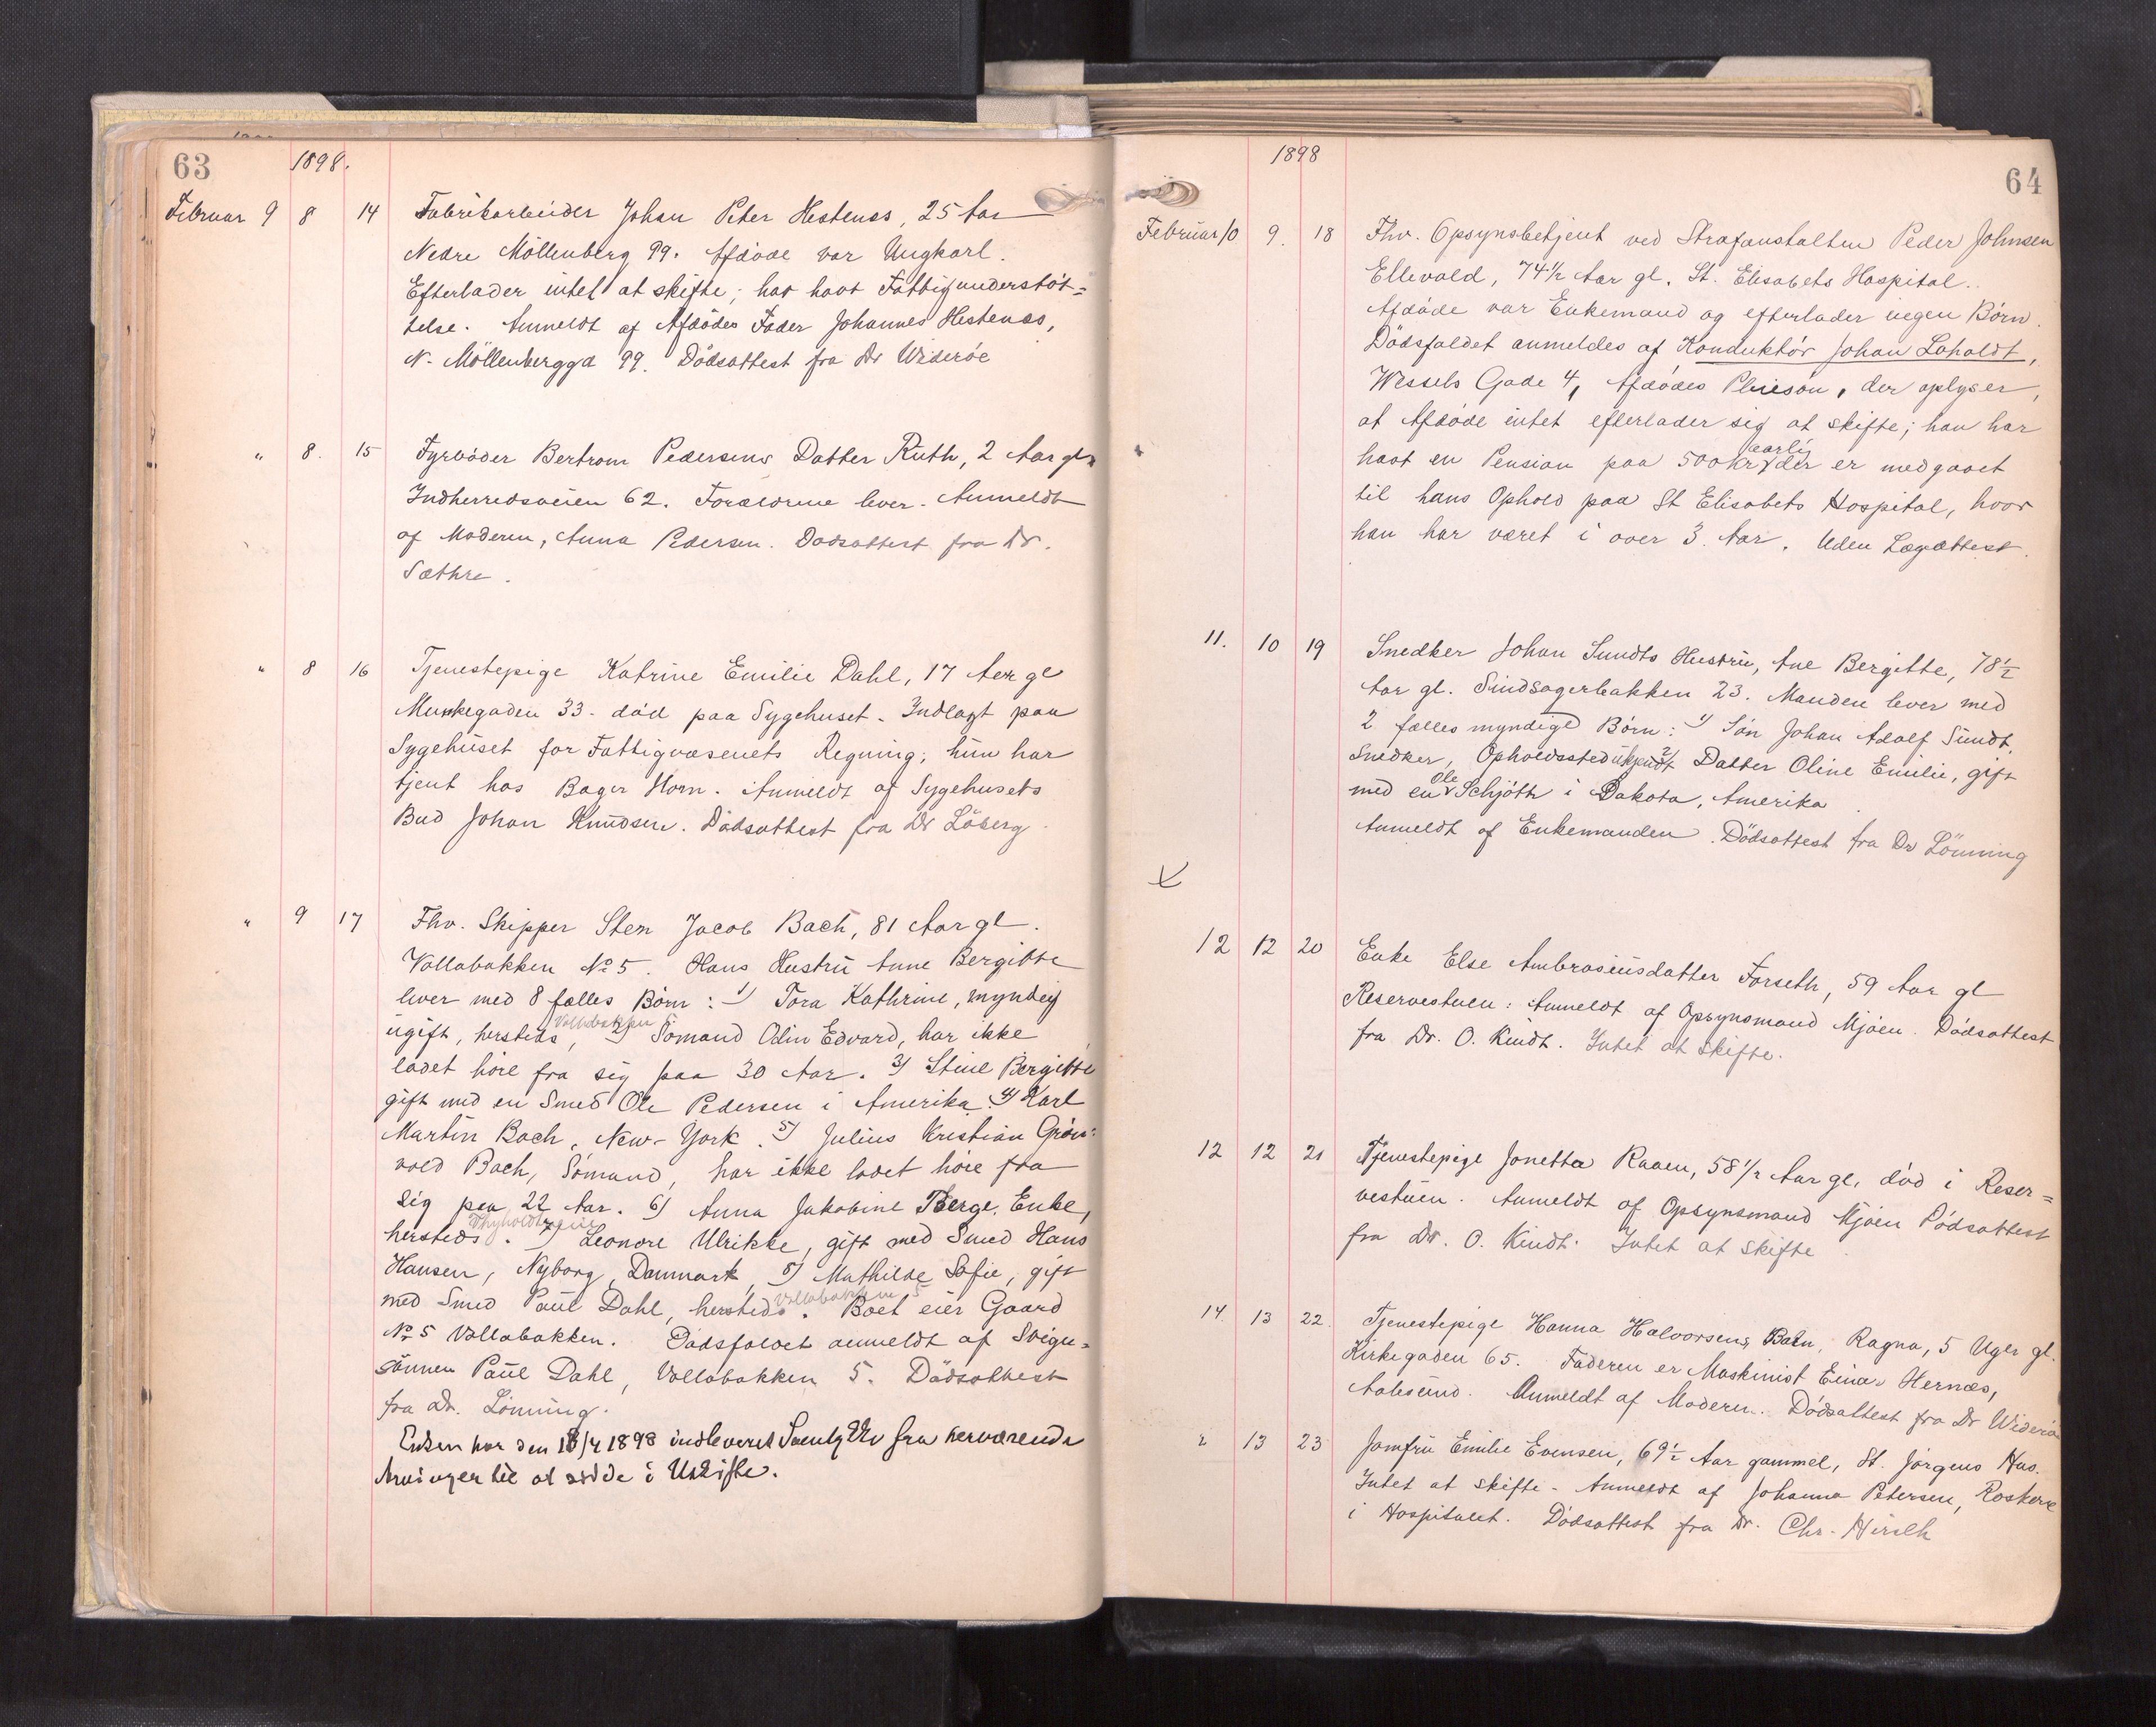 63 1898.
Februar 9 8 14 Fabrikarbeider Johan Peter Hestenes, 25 Aar
Nedre Möllenberg 99. Afdöde var Ungkarl.
Efterlader intet at skifte; har havt Fattigunderstöt=
telse. Anmeldt af Afdödes Fader Johannes Hestenes,
N. Möllenberggd 99. Dödsattest fra Dr Wideröe
" 8. 15 Fyrböder Bertram Pedersens Datter Ruth, 2 Aar gl.
Indherredsveien 62. Forældrene lever. Anmeldt
af Moderen, Anna Pedersen. Dödsattest fra Dr.
Sæthre.
" 8 16 Tjenestepige Katrine Emilie Dahl, 17 Aar gl
Munkegaden 33. död paa Sygehuset. Indlagt paa
Sygehuset for Fattigvæsenets Regning; hun har
tjent hos Bager Horn. Anmeldt af Sygehusets
Bud Johan Knudsen. Dödsattest fra Dr Löberg.
" 9 17 Fhv. Skipper Sten Jacob Bach, 81 Aar gl.
Vollabakken No 5. Hans Hustru Anne Bergitte
lever med 8 fælles Börn: 1) Tora Kathrine, myndig
ugift, hersteds Vollabakken 5, 2) Sömand Odin Edvard, har ikke
ladet höre fra sig paa 30 Aar. 3) Stine Bergitte
gift med en Smed Ole Pedersen i Amerika. 4) Karl
Martin Bach, New-York. 5) Julius Kristian Grön=
vold Bach, Sömand, har ikke ladet höre fra
sig paa 22 Aar. 6) Anna Jakobine Berge, Enke,
hersteds. 7) Leonore Ulrikke, gift med Smed Hans
Hansen, Nyborg, Danmark, 8) Mathilde Sofie, gift
med Smed Paul Dahl, hersteds Vollabakken 5. Boet eier Gaard
No 5 Vollabakken. Dödsfaldet anmeldt af Sviger=
sönnen Paul Dahl, Vollabakken 5. Dödsattest
fra Dr. Lönning.
Enken har den 18/4 1898 indleveret fra herværende
Arvinger til at sidde i Uskifte.
1898 64
Februar 10 9. 18 Fhv. Opsynsbetjent ved Strafanstalten Peder Johnsen
Ellevold, 74 1/2 Aar gl. St. Elisabets Hospital.
Afdöde var Enkemand og efterlader ingen Börn.
Dödsfaldet anmeldes af Konduktör Johan Loholdt,
Wessels Gade 4, Afdödes Pleiesön, der oplyser,
at Afdöde intet efterlader sig at skifte; han har
havt en Pension paa 500 Kr aarlig der er medgaaet
til hans Ophold paa St Elisabets Hospital, hvor
han har været i over 3 Aar. Uden Lægeattest.
11. 10 19 Snedker Johan Sundts Hustru, Ane Bergitte, 78 1/2
Aar gl. Sindsagerbakken 23. Manden lever med
2 fælles myndige Börn: 1) Sön Johan Adolf Sundt,
Snedker, Opholdssted ukjendt 2) Datter Oline Emilie, gift
med en Ole Schjöth i Dakota, Amerika.
Anmeldt af Enkemanden. Dödsattest fra Dr Lönning
12 12 20 Enke Else Ambrosiusdatter Forseth, 59 Aar gl
Reservestuen: Anmeldt af Opsynsmand Mjöen. Dödsattest
fra Dr. O. Kindt. Intet at skifte.
12 12 21 Tjenestepige Jonetta Raaen, 58 1/2 Aar gl, död i Reser=
vestuen. Anmeldt af Opsynsmand Mjöen Dödsattest
fra Dr. O. Kindt. Intet at skifte.
14. 13 22. Tjenestepige Hanna Halvorsens Barn, Ragna, 5 Uger gl.
Kirkegaden 65. Faderen er Maskinist Einar Hernæs,
Aalesund. Anmeldt af Moderen. Dödsattest fra Dr Wideröe
" 13 23 Jomfru Emilie Evensen, 69 1/2 Aar gammel, St. Jörgens Hus.
Intet at skifte. Anmeldt af Johanna Petersen,
i Hospitalet. Dödsattest fra Dr. Chr. Hirsch